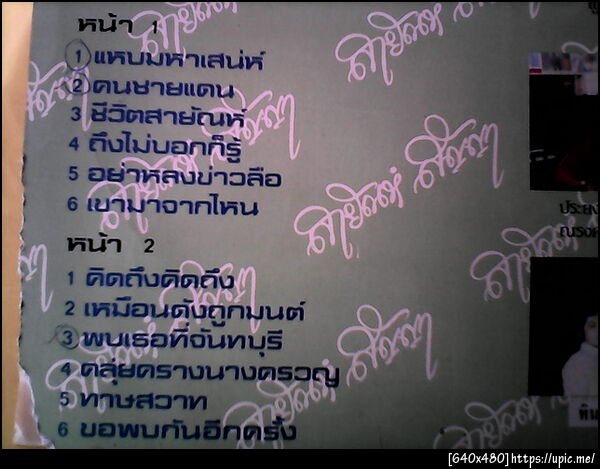 หน้า 1
1 แหบมหาเสน่ห์
2 คนชายแดน
3 ชีวิตสายัณห์
4 ถึงไม่บอกก็รู้
5 อย่าหลงข่าวลือ
6 เขามาจากไหน
หน้า 2
1 คิดถึงคิดถึง
2 เหมือนดังถูกมนต์
3 พบเธอที่จันทบุรี
4 คลุ่ยครางนางครวญ
5 ทาษสวาท
6 ขอพบกันอีกครั้ง
สายัณห์ สัญญา
[640x480]https://upic.me/